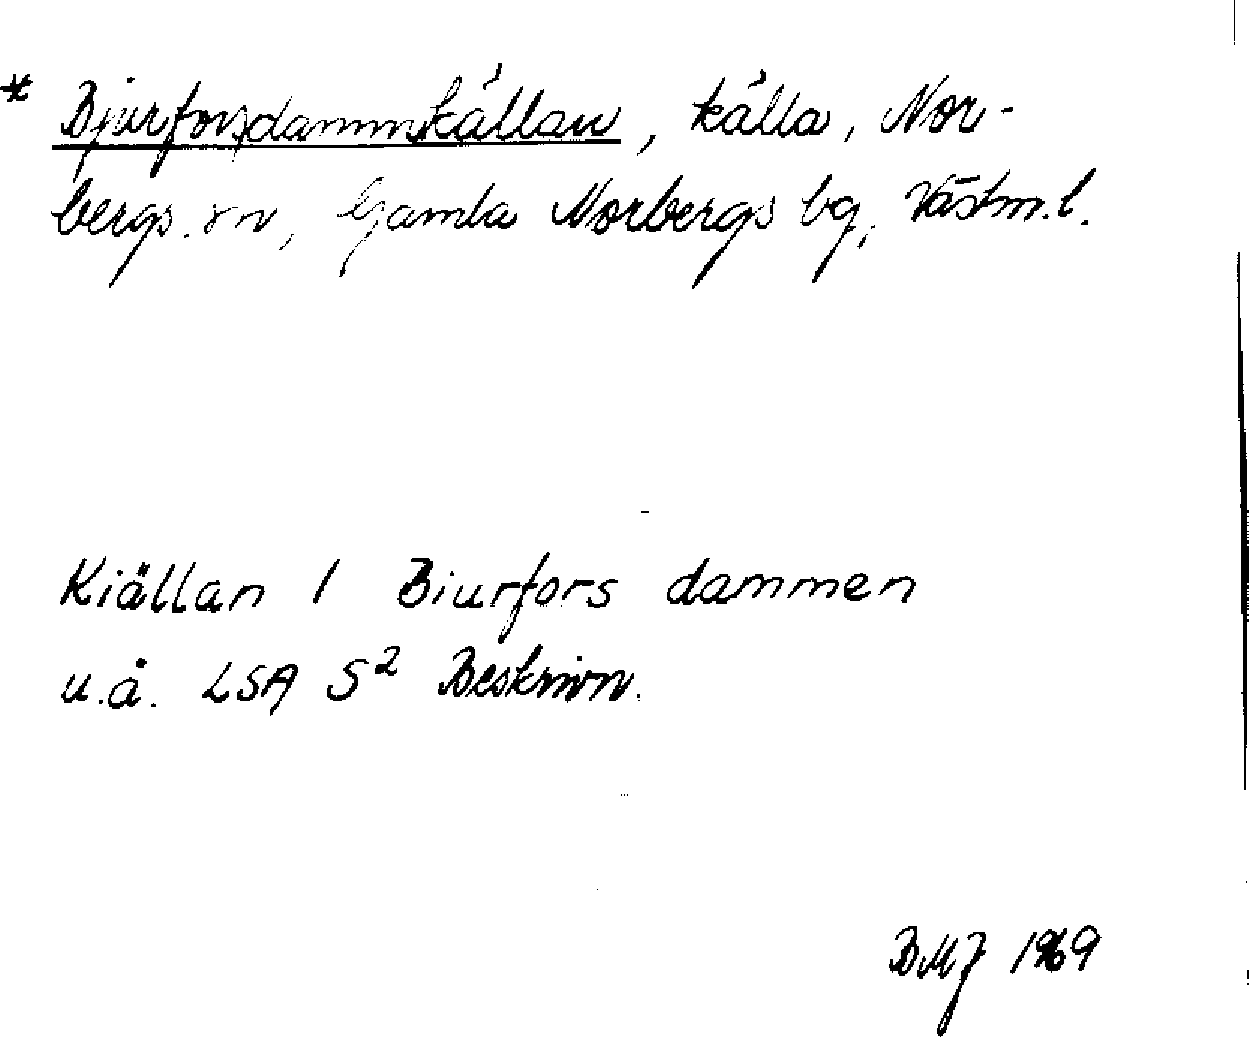 * Bjurforsdammkällan, källa, Nor-
bergs sn, Gamla Norbergs bg, Västm.l.
Kiällan / Biurfors dammen
u.å. LSA S² Beskrivn.
BMJ 1969